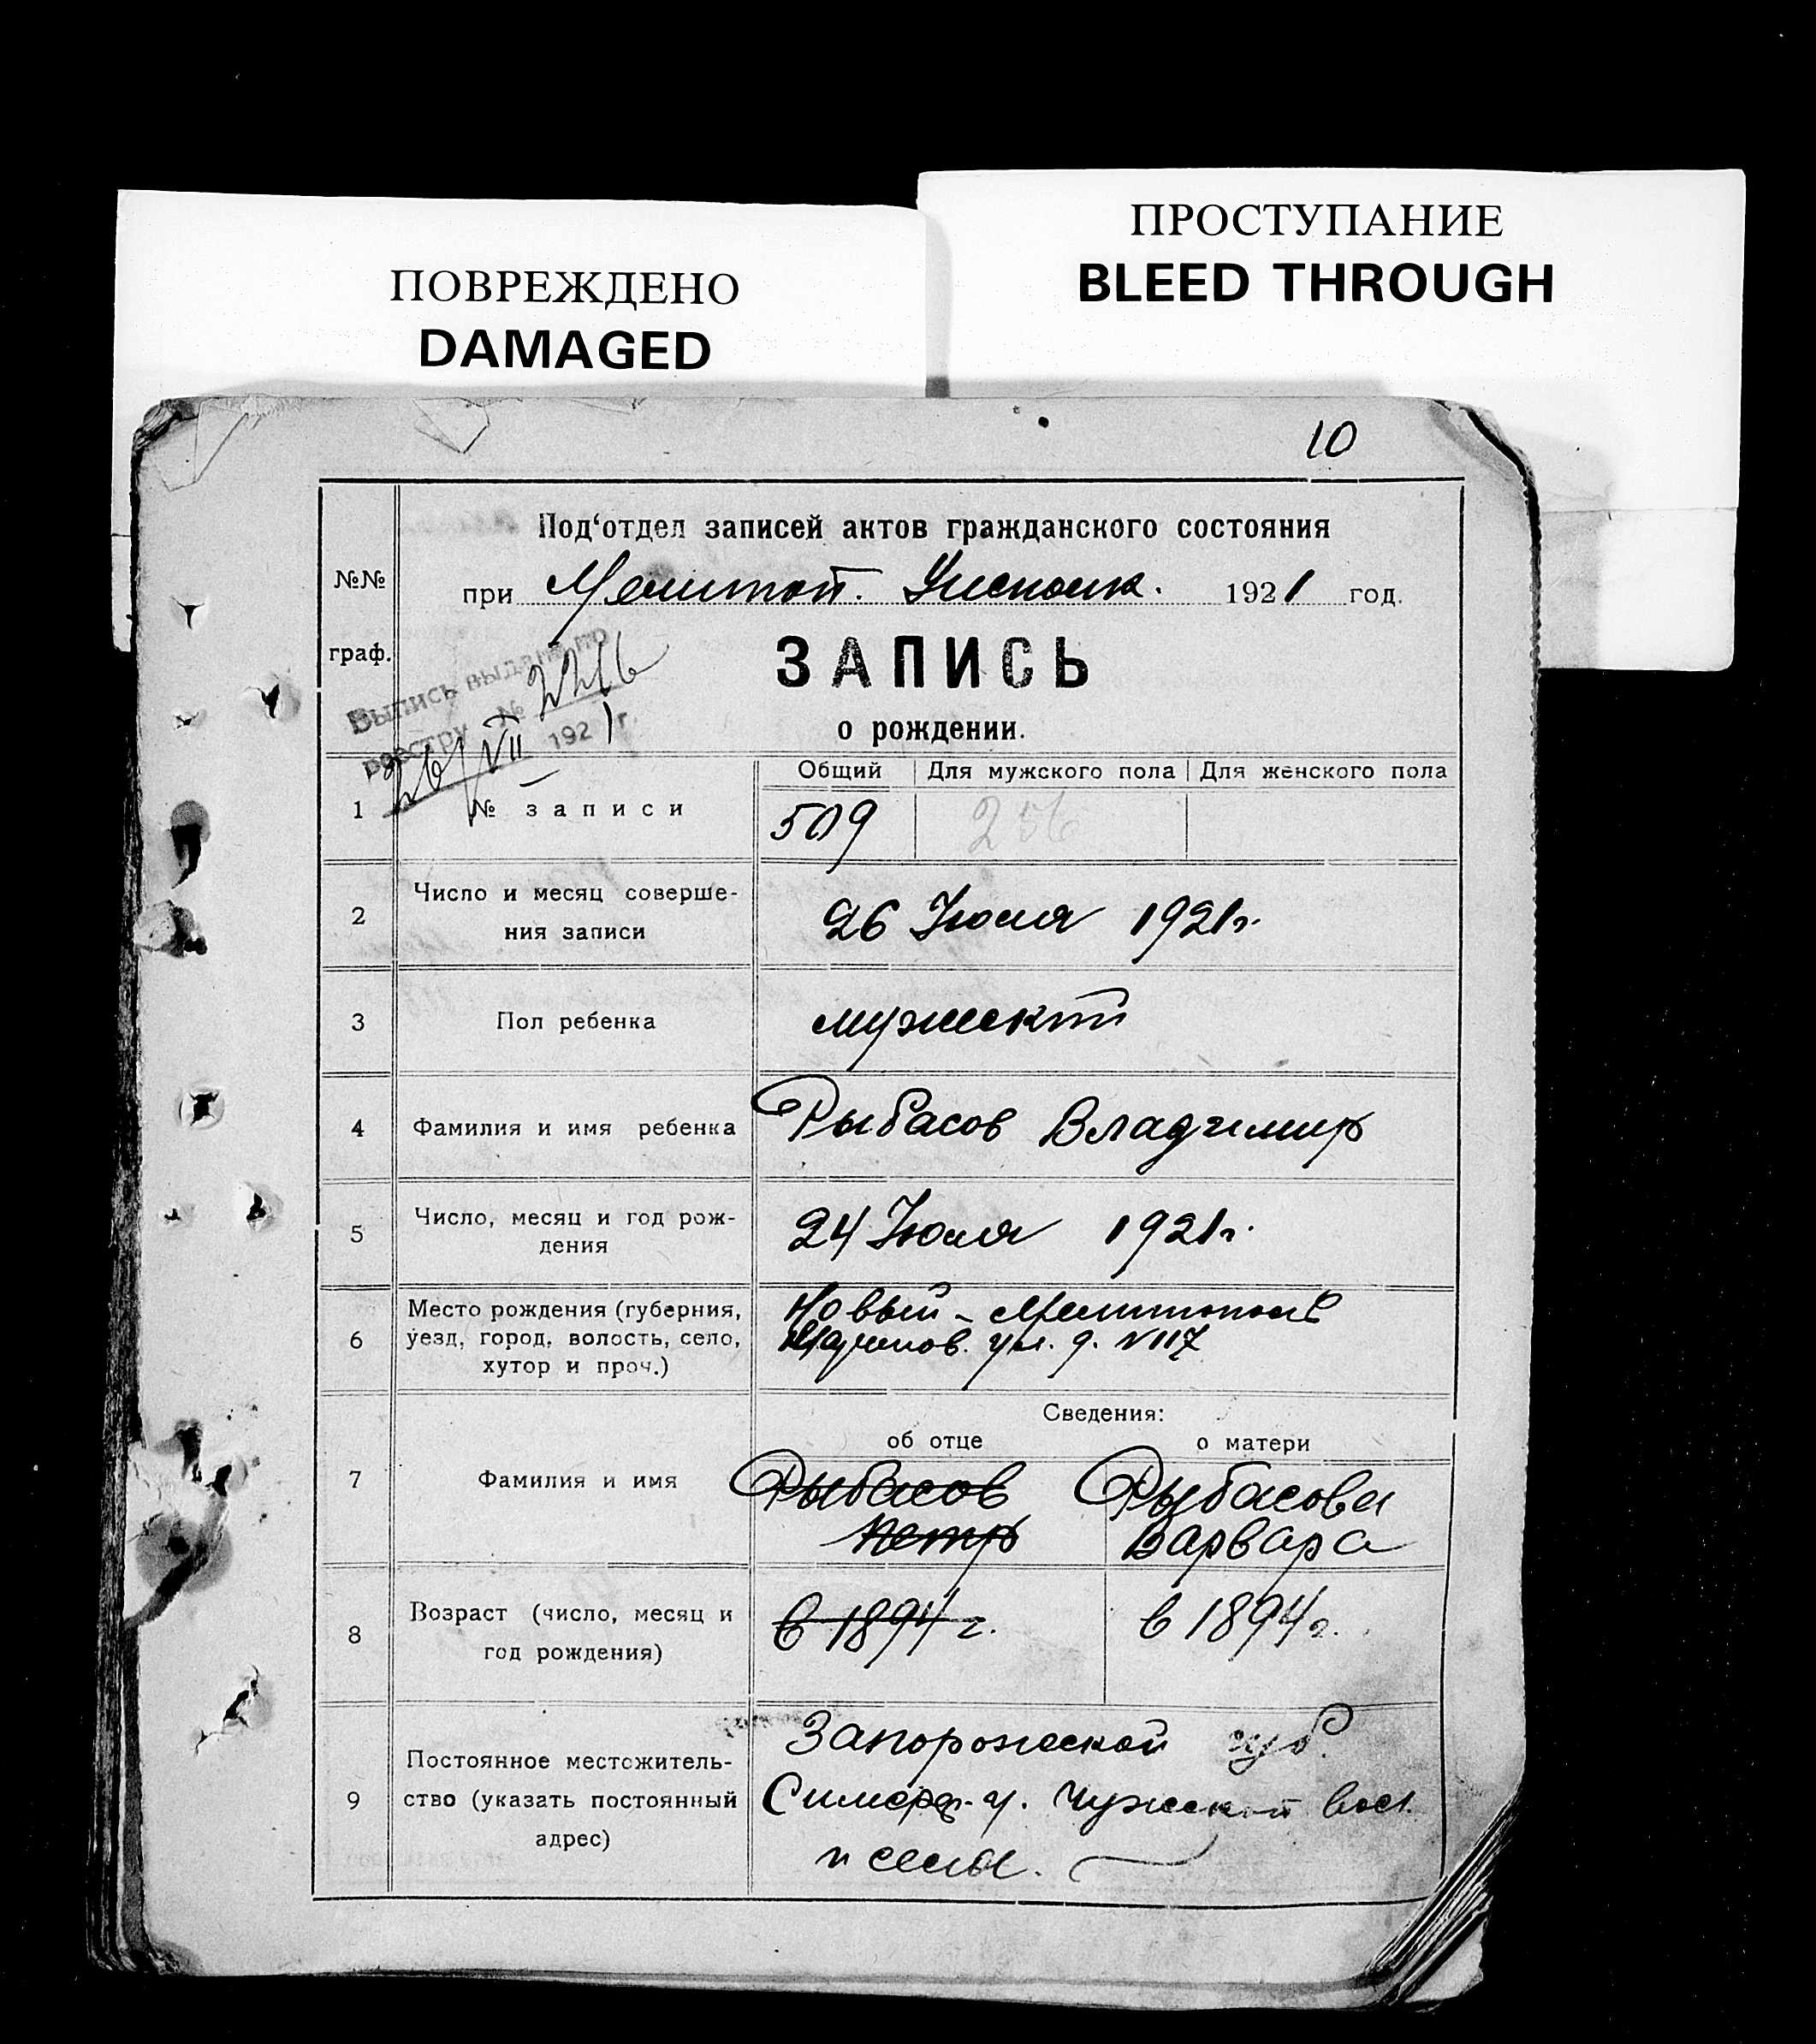 ПРОСТУПАНИЕ
BLEED THROUGH
ПОВРЕЖДЕНО
DAMAGED
10
Под‘отдел записей актов гражданского состояния
№№
граф.
при Мелитоп. Уисполк. 1921 год.
Выпись выдана по
реестру № 2216
26/VII 1921 г.
ЗАПИСЬ
о рождении.
Общий Для мужского пола Для женского пола
1 № записи 509 256
2 Число и месяц соверше-
ния записи
26 Июля 1921г.
3 Пол ребенка мужской
4 Фамилия и имя ребенка Рыбасов Владимир
5 Число, месяц и год рож-
дения
24 Июля 1921г.
6 Место рождения (губерния,
уезд, город, волость, село,
хутор и проч.)
Новый-Мелитополь
ул. д. №117
Сведения:
об отце о матери
7 Фамилия и имя
Рыбасов Рыбасова
Петр Варвара
8 Возраст (число, месяц и
год рождения)
в 1894 г. в 1894 г.
9 Постоянное местожитель-
ство (указать постоянный
адрес)
Запорожской губ.
у. вол.
и села.